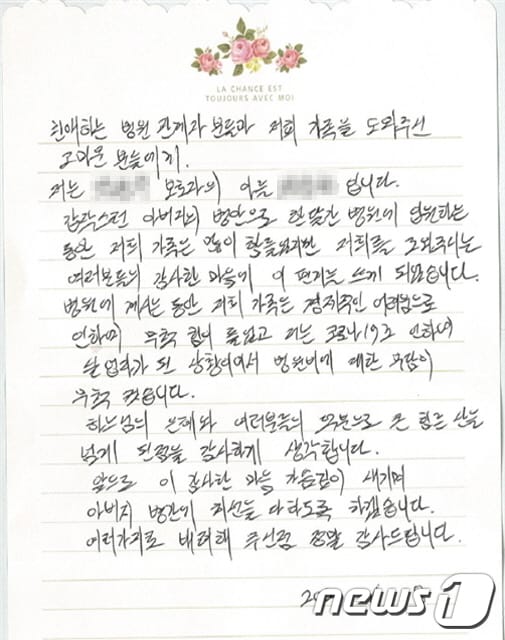 LA CHANCE EST
TOUJOURS AVEC MOI
친애하는 병원 관계자 분들과 저희 가족을 도와주신
고마운 분들에게.
저는 모도과의 아들 입니다.
갑작스런 아버지의 병환으로 한달간 병원에 입원하는
동안 저희 가족은 많이 힘들었지만 저희를 도와주시는
여러분들의 감사한 마음에 이 편지를 쓰게 되었습니다.
병원에 계시는 동안 저희 가족은 경제적인 어려움으로
인하여 무척 힘이 들었고 저는 코로나19로 인하여
실업자가 된 상황이어서 병원비에 대한 부담이
무척 컸습니다.
하느님의 은혜와 여러분들의 덕분으로 큰 힘든 산을
넘게 된점을 감사하게 생각합니다.
앞으로 이 감사한 마음 가슴깊이 새기며
아버지 병간에 최선을 다하도록 하겠습니다.
여러가지로 배려해 주신점 정말 감사드립니다.
news1